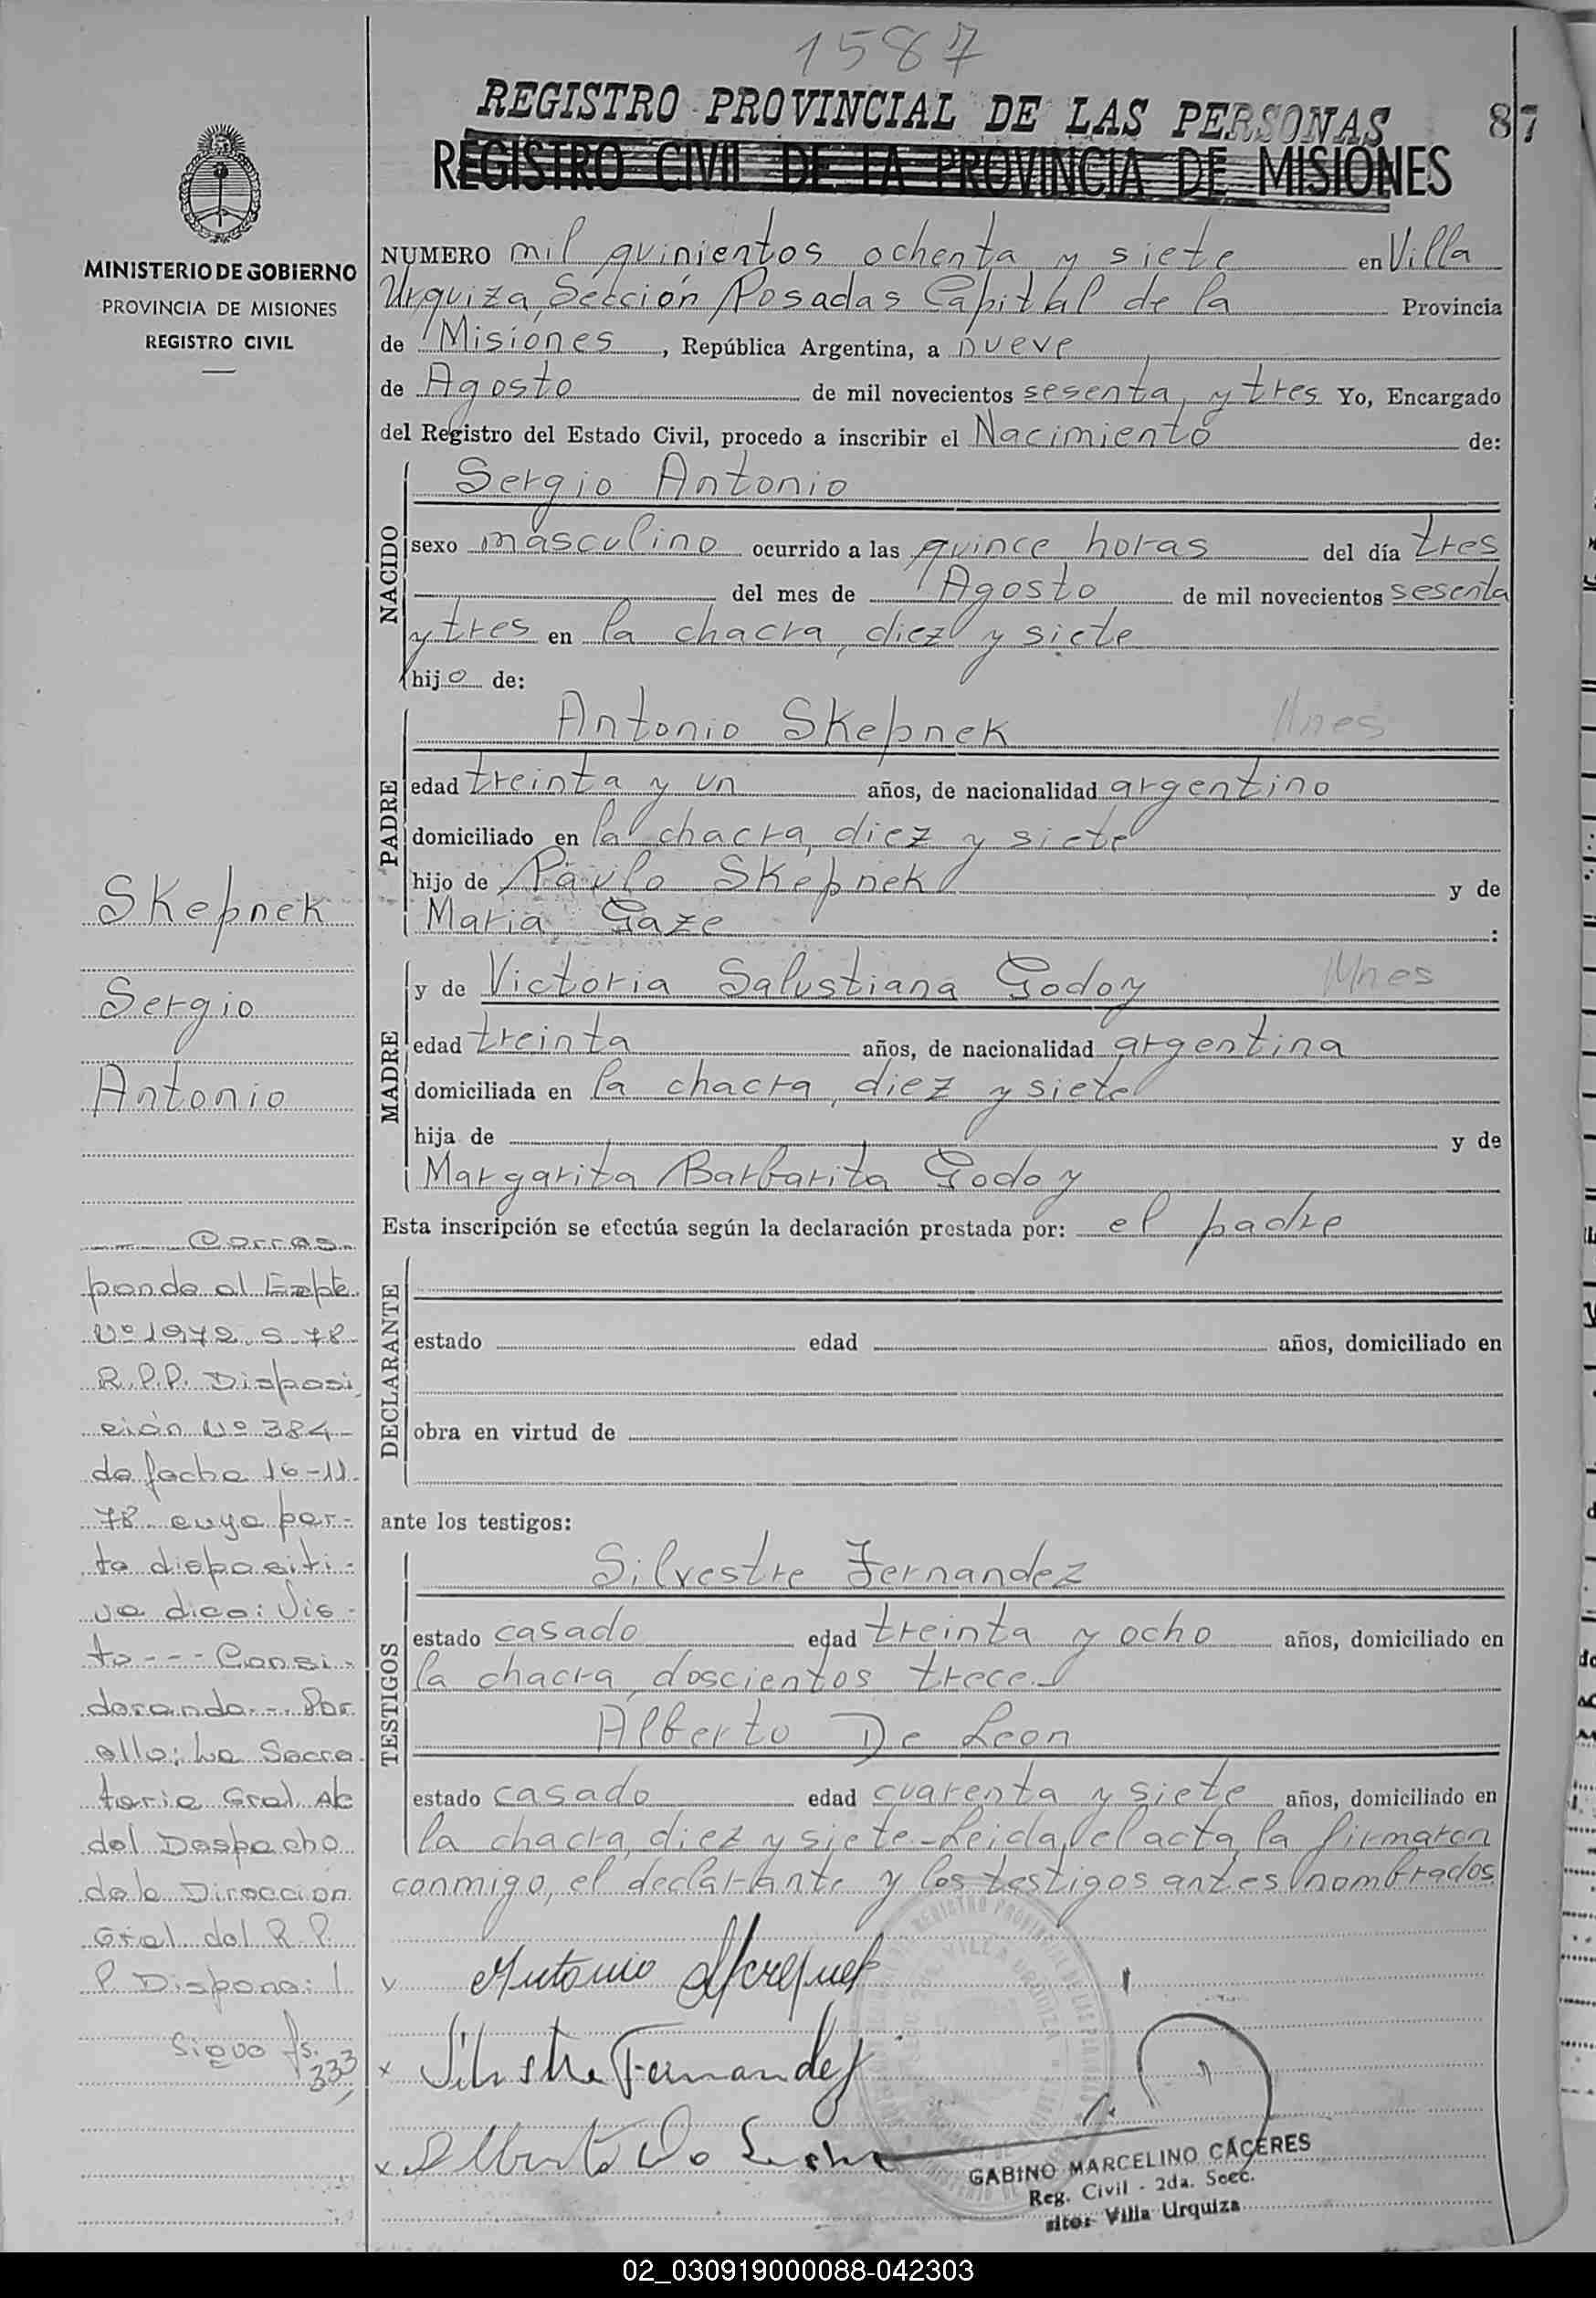 1587
REGISTRO PROVINCIAL DE LAS PERSONAS
87
REGISTRO CIVIL DE LA PROVINCIA DE MISIONES
MINISTERIO DE GOBIERNO
PROVINCIA DE MISIONES
REGISTRO CIVIL
NUMERO mil quinientos ochenta y siete en Villa
Urquiza, Sección Posadas Capital de la Provincia
de Misiones, República Argentina, a nueve
de Agosto de mil novecientos sesenta y tres Yo, Encargado
del Registro del Estado Civil, procedo a inscribir el Nacimiento de:
NACIDO
Sergio Antonio
sexo masculino ocurrido a las quince horas del día tres
del mes de Agosto de mil novecientos sesenta
y tres en la chacra, diez y siete
hijo de:
PADRE
Antonio Skepnek Mnes
edad treinta y un años, de nacionalidad argentino
domiciliado en la chacra, diez y siete
hijo de Pavlo Skepnek y de
Maria Gaze :
MADRE
y de Victoria Salustiana Godoy Mnes
edad treinta años, de nacionalidad argentina
domiciliada en la chacra, diez y siete
hija de y de
Margarita Barbarita Godoy
Esta inscripción se efectúa según la declaración prestada por: el padre
DECLARANTE
estado edad años, domiciliado en
obra en virtud de
ante los testigos:
TESTIGOS
Silvestre Fernandez
estado casado edad treinta y ocho años, domiciliado en
la chacra, doscientos trece
Alberto De Leon
estado casado edad cuarenta y siete años, domiciliado en
la chacra, diez y siete-Leida, el acta, la firmaron
conmigo, el declarante y los testigos antes nombrados
x Antonio
x Silvestre Fernandez
x Alberto De
GABINO MARCELINO CÁCERES
Reg. Civil - 2da. Scec.
Villa Urquiza
Skepnek
Sergio
Antonio
Corres
ponde al Expte.
Nº 1972 S 78
R.P.P. Disposi
ción Nº 384-
de fecha 16-11-
78 cuya par-
te dispositi-
va dice: Vis-
to --- Consi-
derando --- Por
ello; La Secre
taria Gral. Ac
del Despacho
de la Direccion
Gral del R.P.
P. Dispone: 1
Sigue fs.
333
02_030919000088-042303